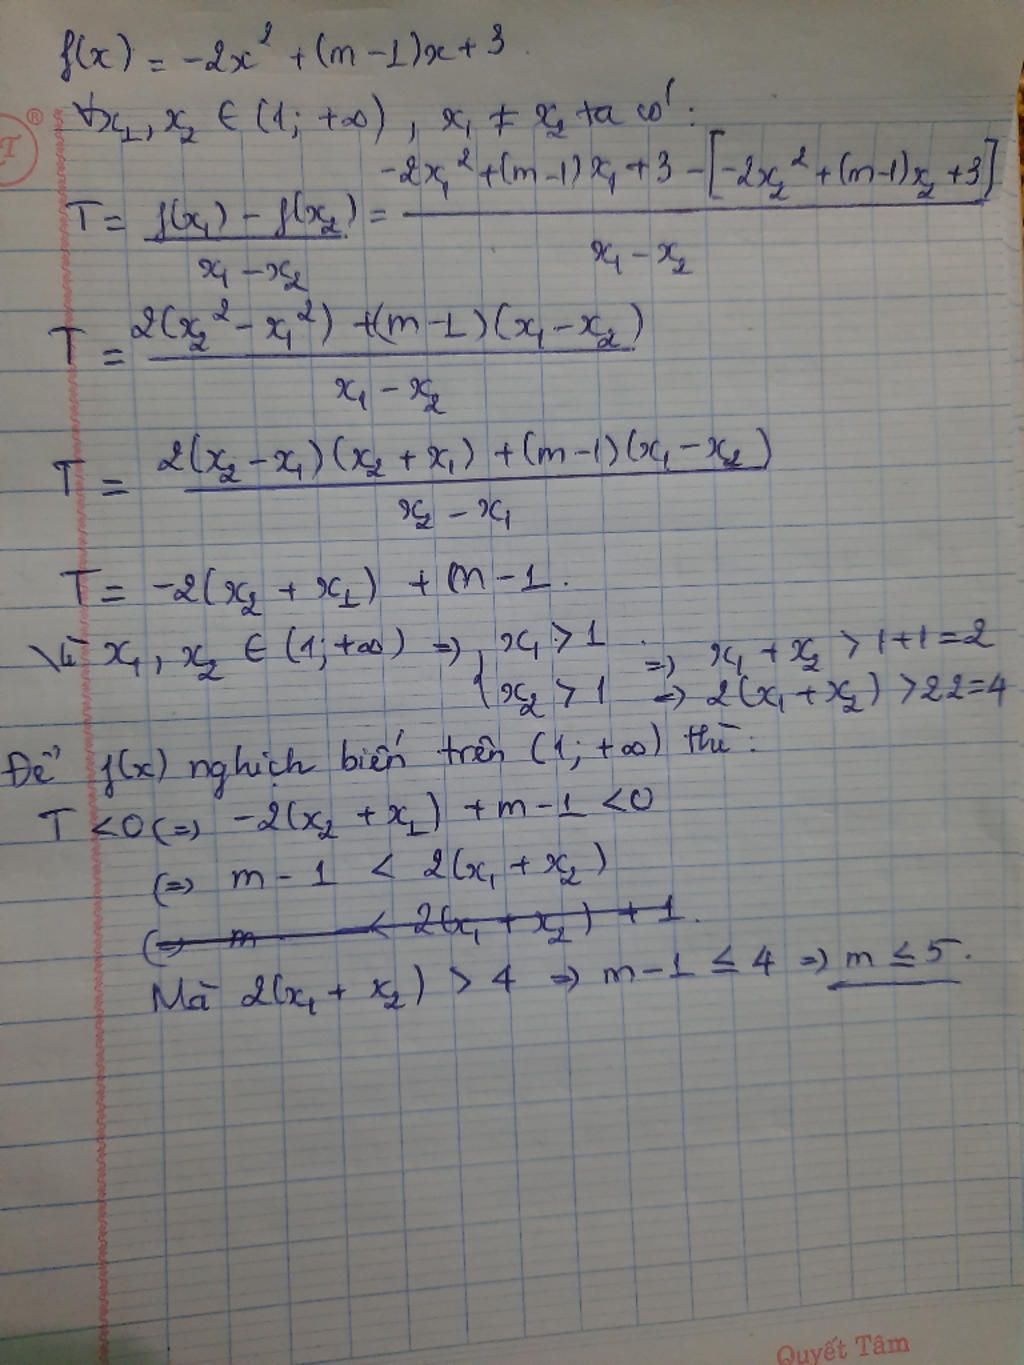 f(x) = -2x² + (m-1)x + 3.
∀x₁, x₂ ∈ (1; +∞), x₁ ≠ x₂ ta có:
T = (f(x₁) - f(x₂))/(x₁ - x₂) = (-2x₁² + (m-1)x₁ + 3 - [-2x₂² + (m-1)x₂ + 3])/(x₁ - x₂)
T = (2(x₂² - x₁²) + (m-1)(x₁ - x₂))/(x₁ - x₂)
T = (2(x₂ - x₁)(x₂ + x₁) + (m-1)(x₁ - x₂))/(x₂ - x₁)
T = -2(x₂ + x₁) + m - 1.
Vì x₁, x₂ ∈ (1; +∞) => { x₁ > 1 => x₁ + x₂ > 1+1 = 2
x₂ > 1 => 2(x₁ + x₂) > 2.2 = 4
Để f(x) nghịch biến trên (1; +∞) thì:
T < 0 (=> -2(x₂ + x₁) + m - 1 < 0
(=> m - 1 < 2(x₁ + x₂)
(=> m < 2(x₁ + x₂) + 1.
Mà 2(x₁ + x₂) > 4 => m - 1 ≤ 4 => m ≤ 5.
®
Quyết Tâm